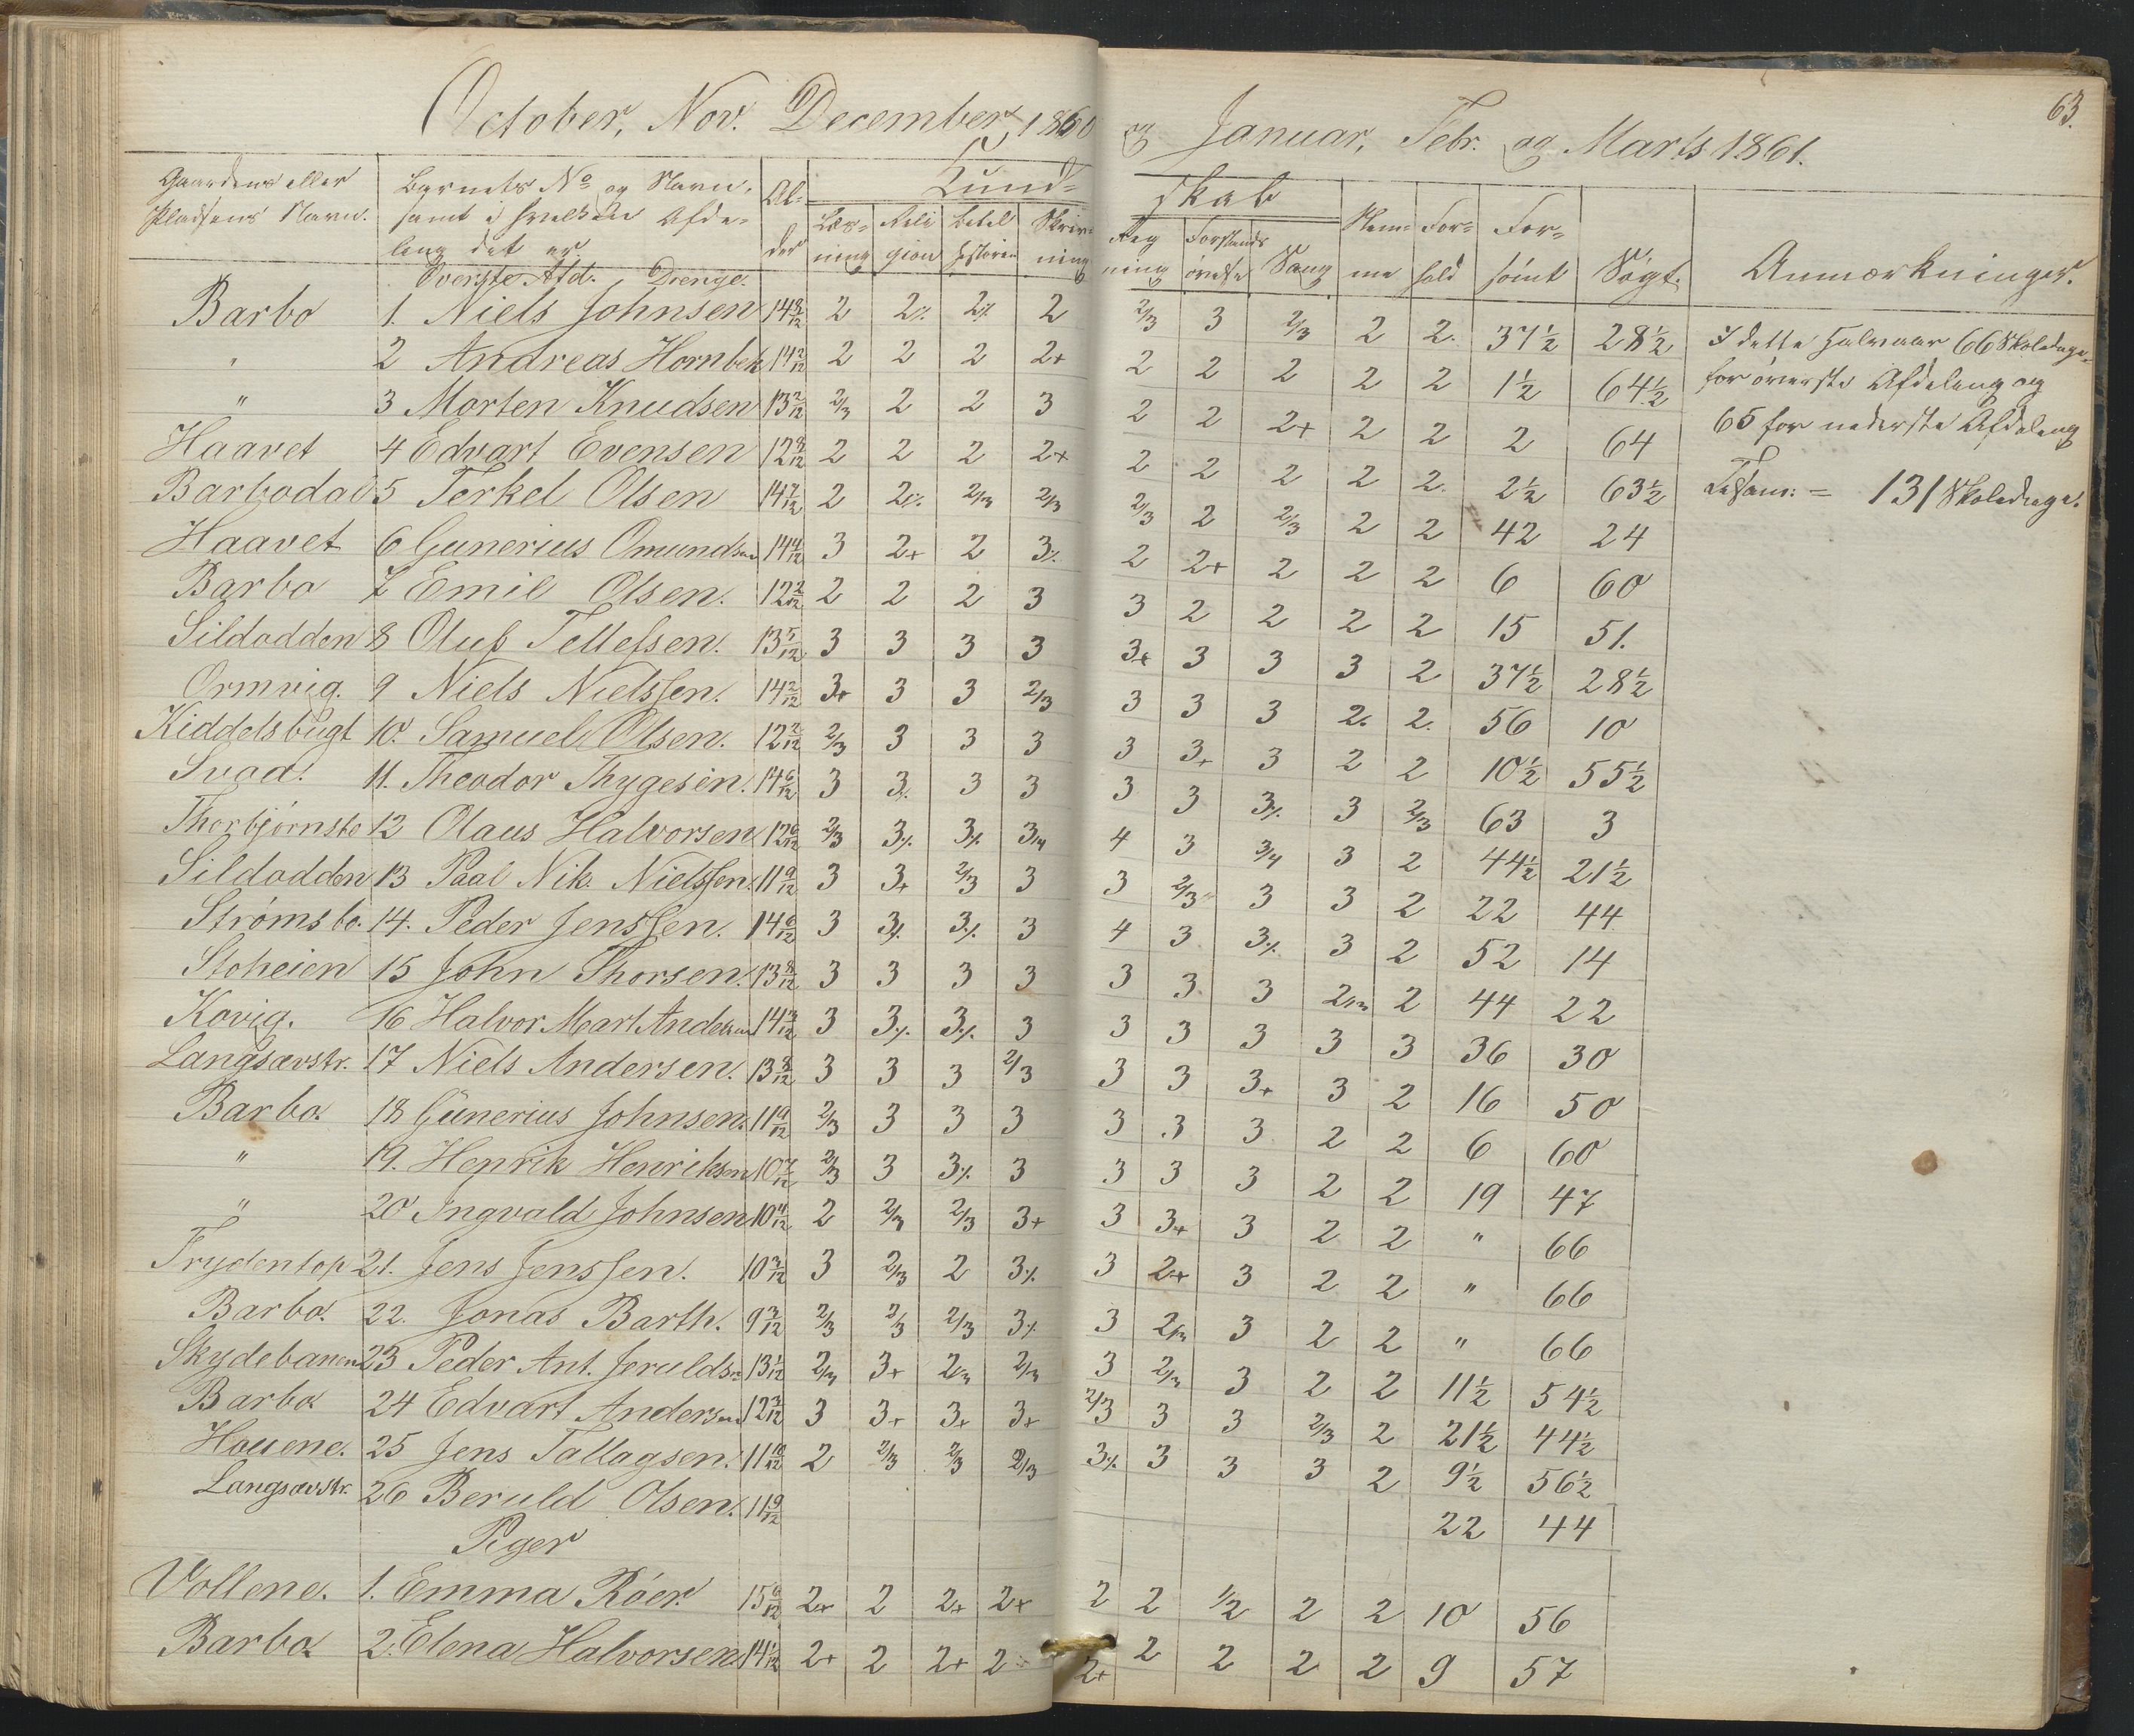 October, Nov. December 1860 og Januar, Febr. og Marts 1861. 63.
Gaardens eller Pladsens Navn. | Barnets No og Navn, samt i hvilken Afdeling det er | Alder | Kundskab | Nemme | Forhold | Forsømt | Søgt. | Anmærkninger.
Læsning | Religion | Bibelhistorien | Skrivning | Regning | Forstandsøvelse | Sang
Øverste Afd. Drenge.
Barbo 1. Niels Johnsen 14 8/12 2 2% 2% 2 2/3 3 2/3 2 2. 37½ 28½
" 2 Andreas Hornbek 14 2/12 2 2 2 2+ 2 2 2 2 2 1½ 64½
" 3 Morten Knudsen 13 2/12 2/3 2 2 3 2 2 2+ 2 2 2 64
Haavet 4 Edvart Evensen 12 8/12 2 2 2 2+ 2 2 2 2 2. 2½ 63½
Barbodal 5 Terkel Olsen 14 7/12 2 2% 2/3 2/3 2/3 2 2/3 2 2 42 24
Haavet 6 Gunerius Omundsen 14 4/12 3 2+ 2 3% 2 2+ 2 2 2 6 60
Barbo 7 Emil Olsen. 12 2/12 2 2 2 3 3 2 2 2 2 15 51.
Sildodden 8 Oluf Tellefsen. 13 5/12 3 3 3 3 3+ 3 3 3 2 37½ 28½
Ormvig. 9 Niels Nielssen. 14 2/12 3+ 3 3 2/3 3 3 3 2. 2. 56 10
Kiddelsbugt 10. Samuel Olsen. 12 2/12 2/3 3 3 3 3 3+ 3 2 2 10½ 55½
Svaa. 11. Theodor Thygesen. 14 6/12 3 3% 3 3 3 3 3% 3 2/3 63 3
Thorbjørnsbo 12 Olaus Halvorsen 12 6/12 2/3 3% 3% 3/4 4 3 3/4 3 2 44½ 21½
Sildodden 13 Paal Nik. Nielssen. 11 9/12 3 3+ 2/3 3 3 2/3 3 3 2 22 44
Strømsbo. 14. Peder Jenssen. 14 6/12 3 3% 3% 3 4 3 3% 3 2 52 14
Stoheien 15 John Thorsen. 13 8/12 3 3 3 3 3 3 3 2/3 2 44 22
Kovig. 16 Halvor Mart Andersen 14 3/12 3 3% 3% 3 3 3 3 3 3 36 30
Langsævstr. 17 Niels Andersen. 13 8/12 3 3 3 2/3 3 3 3+ 3 2 16 50
Barbo. 18 Gunerius Johnsen. 11 9/12 2/3 3 3 3 3 3 3 2 2 6 60
" 19. Henrik Henriksen 10 7/12 2/3 3 3% 3 3 3 3 2 2 19 47
" 20 Ingvald Johnsen 10 11/12 2 2/3 2/3 3+ 3 3+ 3 2 2 " 66
Frydentop 21. Jens Jenssen. 10 3/12 3 2/3 2 3% 3 2+ 3 2 2 " 66
Barbo. 22. Jonas Barth. 9 3/12 2/3 2/3 2/3 3% 3 2/3 3 2 2 " 66
Skydebanen 23 Peder Ant. Jerulds 13 1/12 2/3 3+ 2/3 2/3 3 2/3 3 2 2 11½ 54½
Barbo 24 Edvart Andersen 12 3/12 3 3+ 3+ 3+ 2/3 3 3 2/3 2 21½ 44½
Houene. 25 Jens Tallagsen. 11 10/12 2 2/3 2/3 2/3 3% 3 3 3 2 9½ 56½
Langsævstr. 26 Beruld Olsen. 11 9/12 22 44
Piger
Vollene. 1. Emma Röer. 15 6/12 2+ 2 2+ 2+ 2 2 1/2 2 2 10 56
Barbo. 2. Elena Halvorsen 14 1/12 2+ 2 2+ 2 2+ 2 2 2 2 9 57
I dette Halvaar 66 Skoledage
for øverste Afdeling og
65 for nederste Afdeling
Tilsam: = 131 Skoledage.